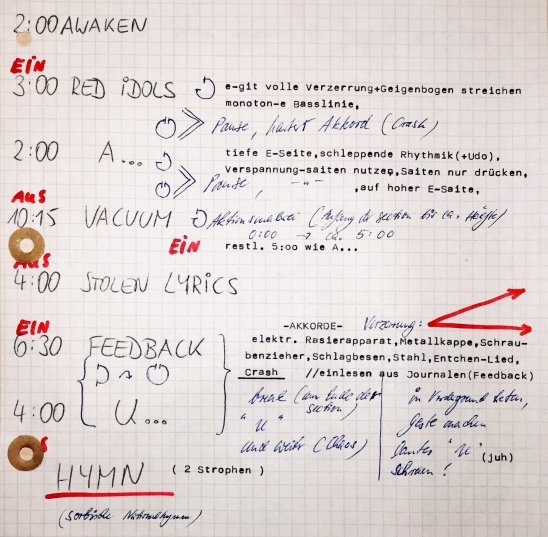 2:00 AWAKEN
EIN
3:00 RED IDOLS e-git volle Verzerrung+Geigenbogen streichen
monoton-e Basslinie,
Pause, hartet Akkord (Crash)
2:00 A... tiefe E-Seite,schleppende Rhythmik(+Udo),
Verspannung-saiten nutzen,Saiten nur drücken,
Pause, -"- ,auf hoher E-Seite,
AUS
10:15 VACUUM Aktionsmalerei (Anfang der section bis ca. Hälfte)
0:00 → ca. 5:00
EIN restl. 5:oo wie A...
AUS
4:00 STOLEN LYRICS
EIN
-AKKORDE- Verzerrung:
6:30 FEEDBACK elektr. Rasierapparat,Metallkappe,Schrau-
benzieher,Schlagbesen,Stahl,Entchen-Lied,
Crash //einlesen aus Journalen(Feedback)
4:00 U...
break (am Ende der
"U" section)
und weiter (Chaos)
in Vordergrund treten,
Geste machen
lautes "U" (juh)
schreien!
S
HYMN ( 2 Strophen )
(serbische Nationalhymne)